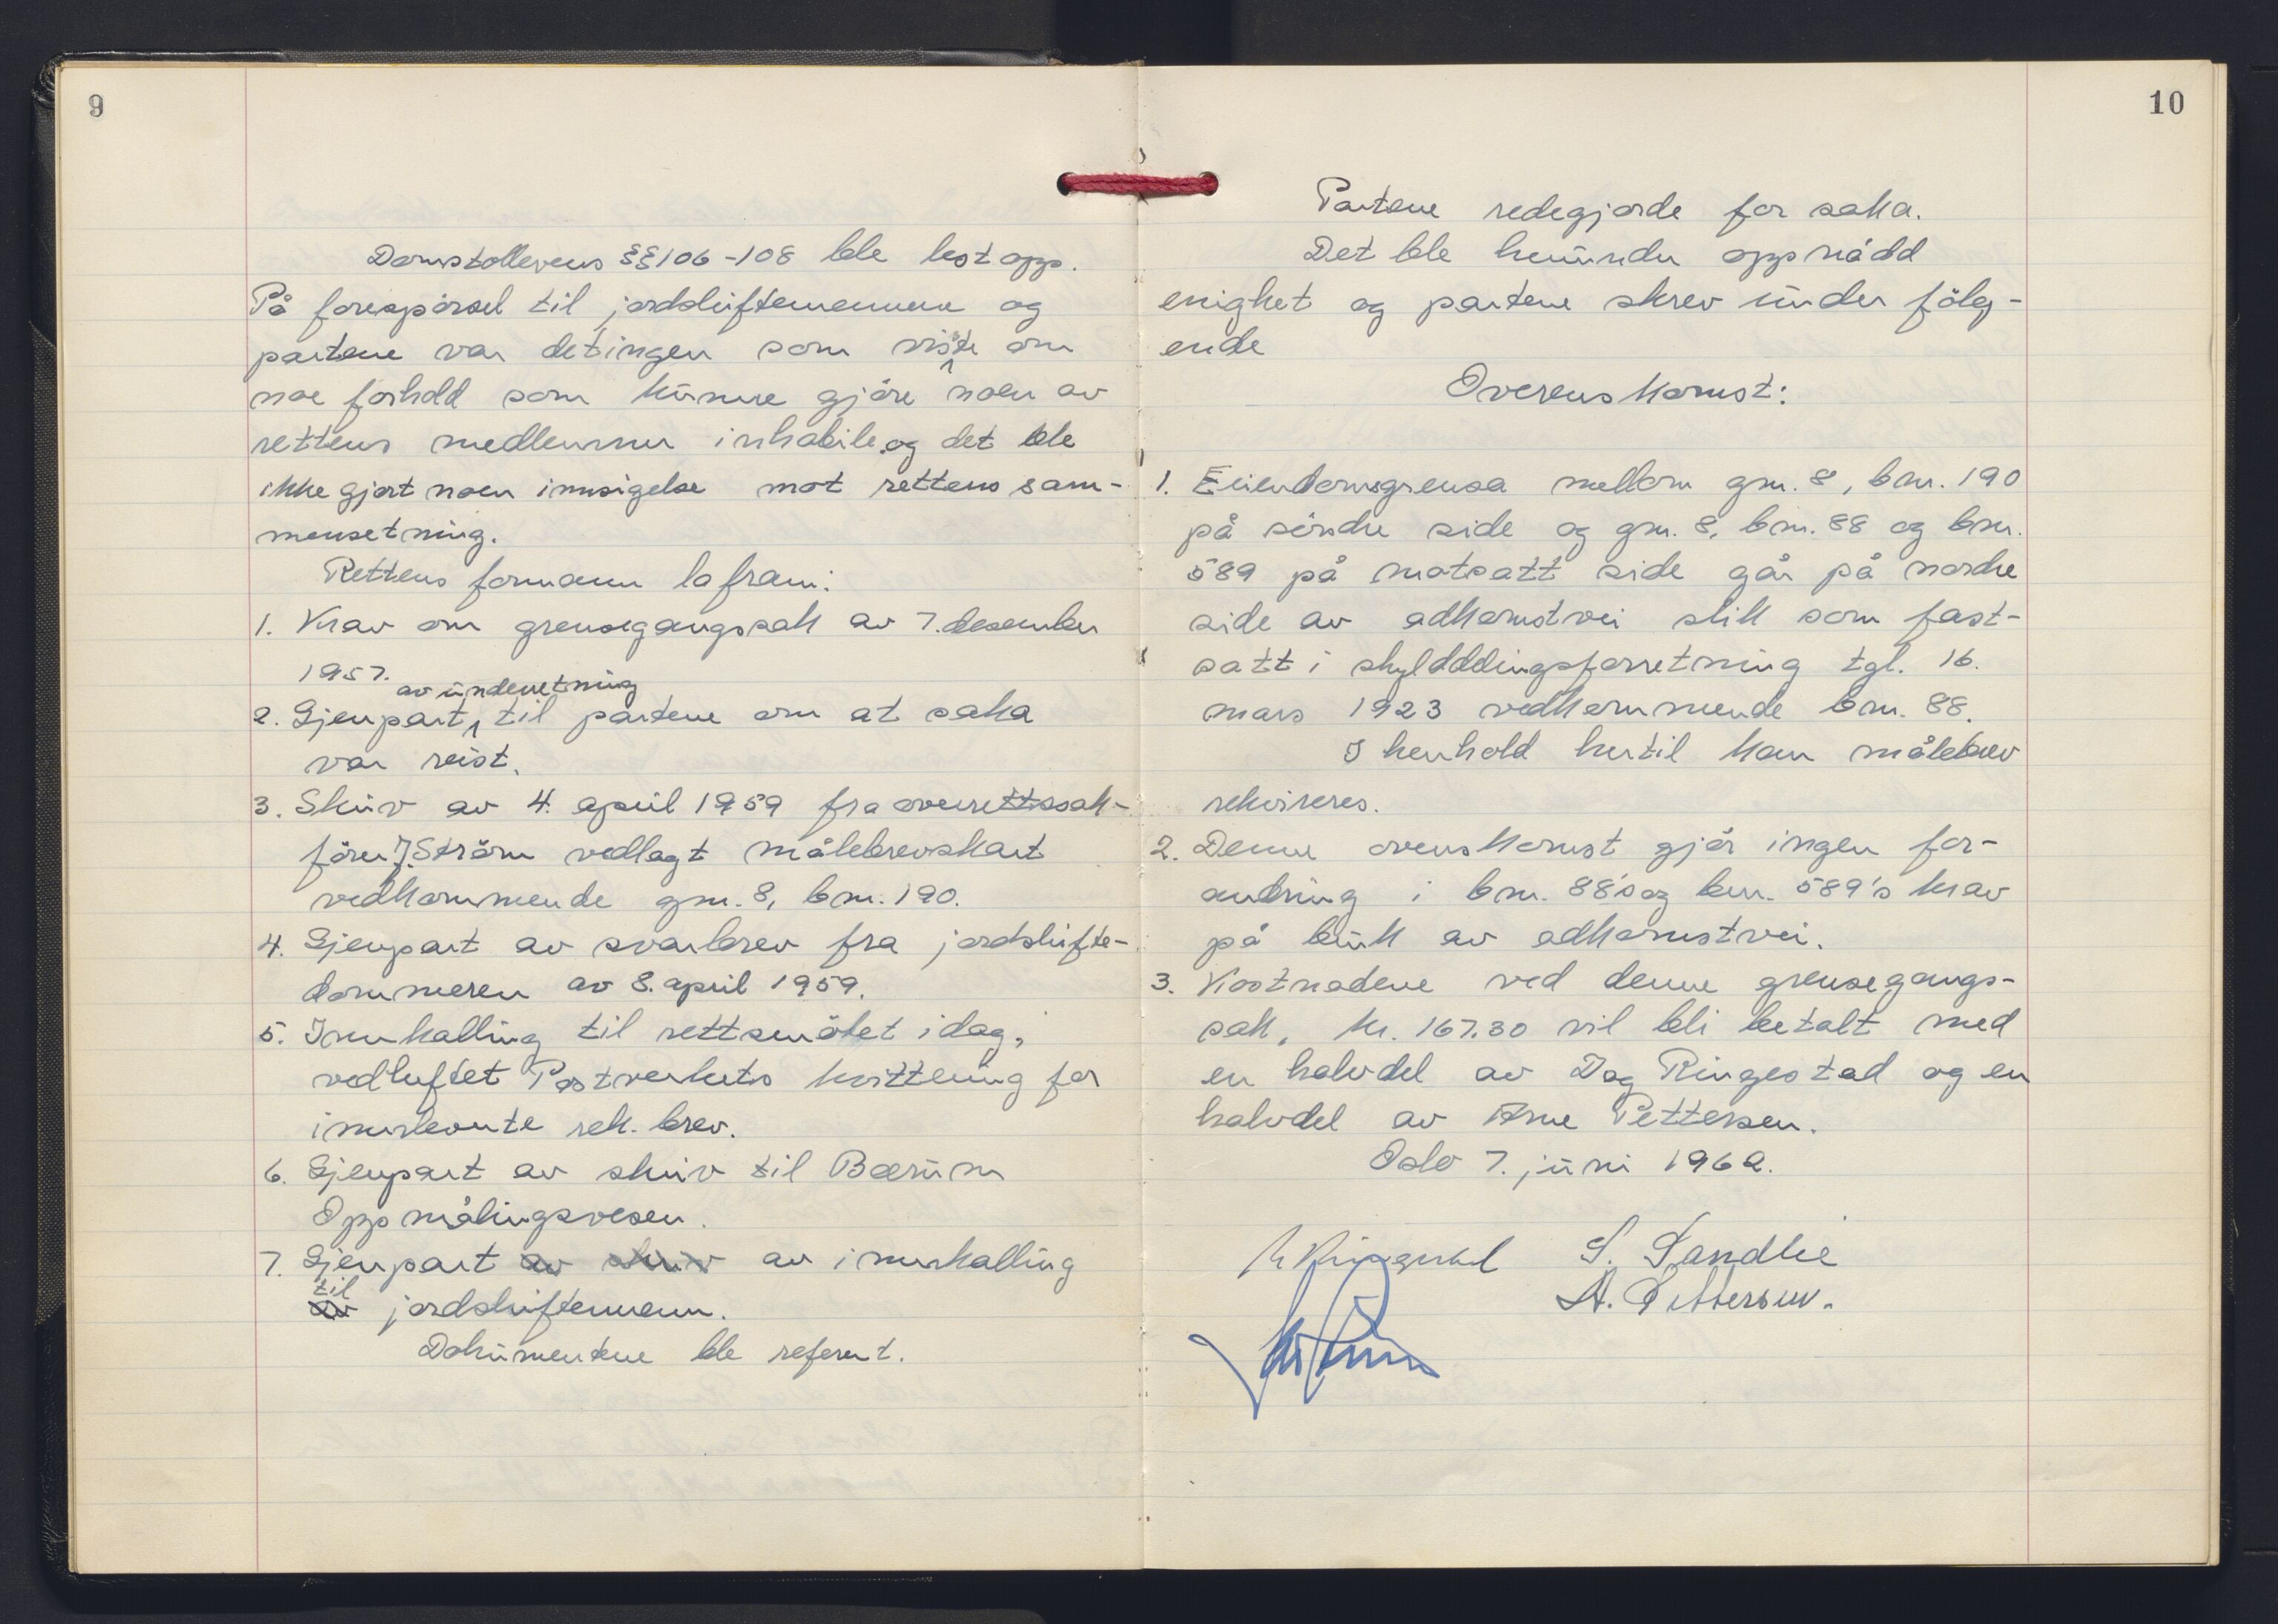 9
Domstollevens §§ 106-108 ble lest opp.
På forespørsel til jordskiftemennene og
partene var det ingen som visste om
noe forhold som kunne gjøre noen av
rettens medlemmer inhabile og det ble
ikke gjort noen innsigelse mot rettens sam-
mensetning.
Rettens formann la fram:
1. Krav om grensegangssak av 7. desember
1957.
av underretning
2. Gjenpart til partene om at saka
var reist.
3. Skriv av 4. april 1959 fra overrettssak-
fører J. Strøm vedlagt målebrevskart
vedkommende gnr. 8, bnr. 190.
4. Gjenpart av svarbrev fra jordskifte-
dommeren av 8. april 1959.
5. Innkalling til rettsmøtet i dag,
vedheftet Postverkets kvittering for
innleverte rek. brev.
6. Gjenpart av skriv til Bærum
Oppmålingsvesen.
7. Gjenpart av skriv av innkalling
til
av jordskiftemenn.
Dokumentene ble referert.
10
Partene redegjorde for saka.
Det ble herunder oppnådd
enighet og partene skrev under følg-
ende
Overenskomst:
1. Eiendomsgrensa mellom gnr. 8, bnr. 190
på søndre side og gnr. 8, bnr. 88 og bnr.
589 på motsatt side går på nordre
side av adkomstvei slik som fast-
satt i skyldddlingsforretning tgl. 16.
mars 1923 vedkommende bnr. 88.
I henhold hertil kan målebrev
rekvireres.
2. Denne ovenskomst gjør ingen for-
andring i bnr. 88's og bnr. 589's krav
på bruk av adkomstvei.
3. Kostnadene ved denne grensegangs-
sak, kr. 167.30 vil bli betalt med
en halvdel av Dag Ringestad og en
halvdel av Arne Pettersen.
Oslo 7. juni 1962.
S. Sandlie
A. Pettersen.